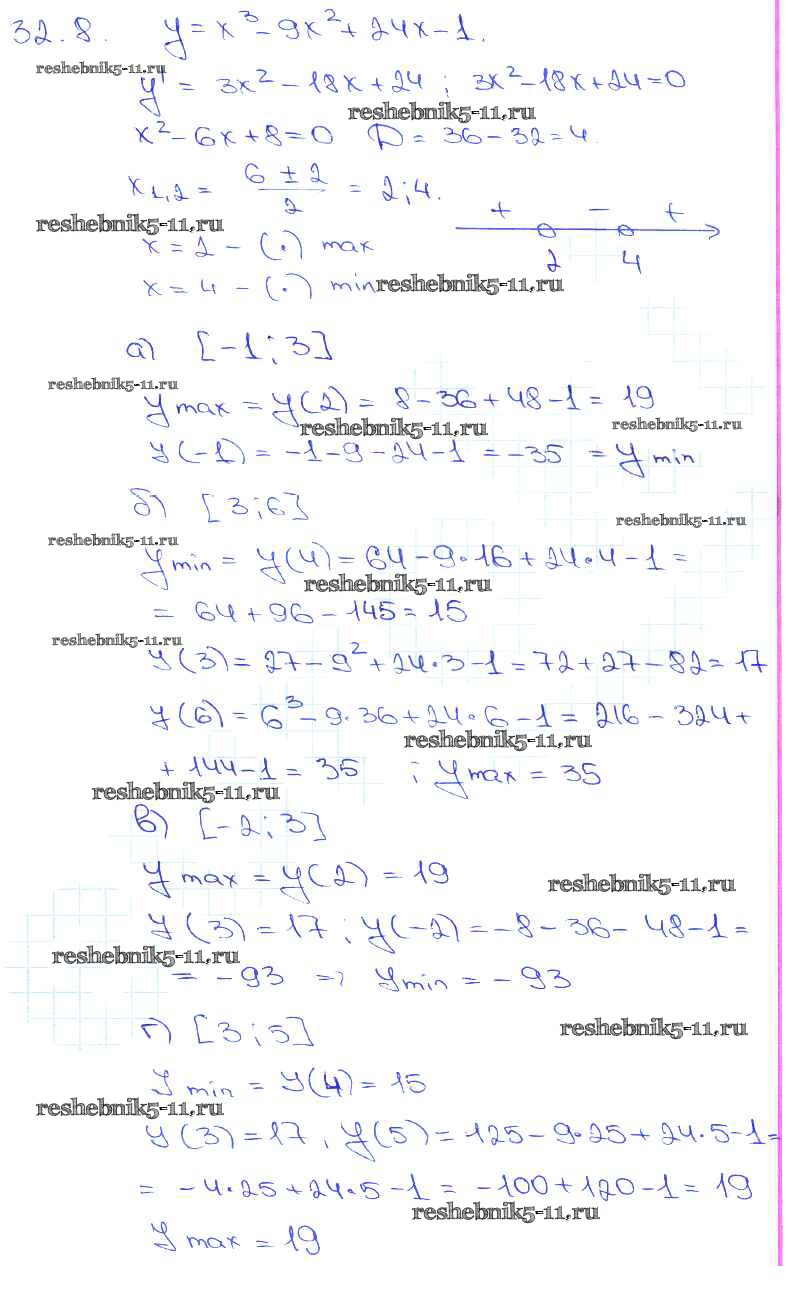 32.8. y = x³ - 9x² + 24x - 1.
reshebnik5-11.ru
y' = 3x² - 18x + 24 ; 3x² - 18x + 24 = 0
reshebnik5-11.ru
x² - 6x + 8 = 0 D = 36 - 32 = 4
x₁,₂ = (6 ± 2)/2 = 2; 4.
+ - +
reshebnik5-11.ru
2 4
x = 2 - (·) max
x = 4 - (·) min
reshebnik5-11.ru
а) [-1; 3]
reshebnik5-11.ru
y max = y(2) = 8 - 36 + 48 - 1 = 19
reshebnik5-11.ru
reshebnik5-11.ru
y(-1) = -1 - 9 - 24 - 1 = -35 = y min
б) [3; 6]
reshebnik5-11.ru
reshebnik5-11.ru
y min = y(4) = 64 - 9·16 + 24·4 - 1 =
reshebnik5-11.ru
= 64 + 96 - 145 = 15
reshebnik5-11.ru
y(3) = 27 - 9² + 24·3 - 1 = 72 + 27 - 82 = 17
y(6) = 6³ - 9·36 + 24·6 - 1 = 216 - 324 +
reshebnik5-11.ru
+ 144 - 1 = 35 ; y max = 35
reshebnik5-11.ru
в) [-2; 3]
y max = y(2) = 19
reshebnik5-11.ru
y(3) = 17 ; y(-2) = -8 - 36 - 48 - 1 =
reshebnik5-11.ru
= -93 => y min = -93
г) [3; 5]
reshebnik5-11.ru
y min = y(4) = 15
reshebnik5-11.ru
y(3) = 17, y(5) = 125 - 9·25 + 24·5 - 1 =
= -4·25 + 24·5 - 1 = -100 + 120 - 1 = 19
reshebnik5-11.ru
y max = 19